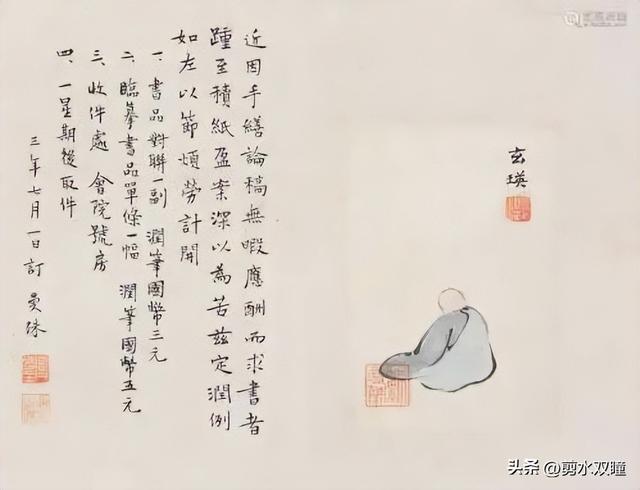 玄瑛
近因手繕論稿無暇應酬而求書者
踵至積紙盈案深以為苦茲定潤例
如左以節煩勞計開
一、書品對聯一副 潤筆國幣三元
二、臨摹書品單條一幅 潤筆國幣五元
三、收件處 會院號房
四、一星期後取件
三年七月一日訂 曼殊
头条 @剪水双瞳